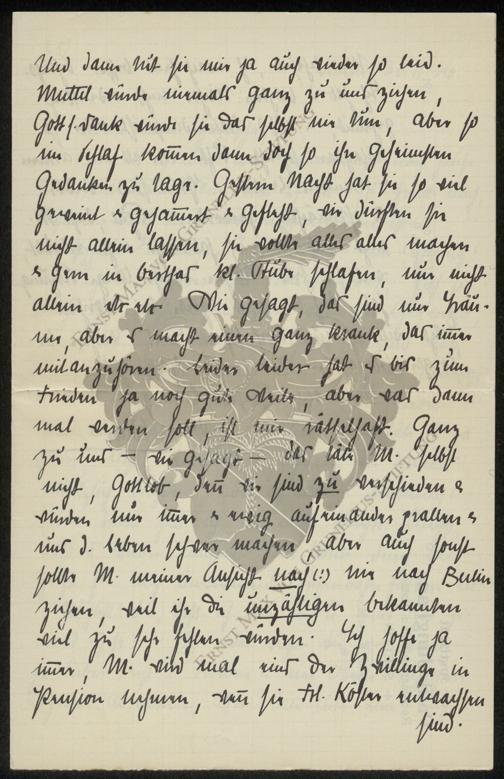 Und dann tut sie mir ja auch wieder so leid.
Muttel würde niemals ganz zu uns ziehen,
Gott s. dank würde sie das selbst nie tun, aber so
im Schlaf kommen dann doch so ihre geheimsten
Gedanken zu Tage. Gestern Nacht hat sie so viel
geweint & gejammert & gefleht, wir dürften sie
nicht allein lassen, sie wollte alles alles machen
& gern in Berthas kl. Stube schlafen, nur nicht
allein etc etc. Wie gesagt, das sind nur Träu-
me, aber es macht einen ganz krank, das immer
mitanzuhören. Leider leider hat es bis zum
Frieden ja noch gute Weile, aber was dann
mal werden soll, ist mir rätselhaft. Ganz
zu uns – wie gesagt – das täte M. selbst
nicht, Gottlob, denn wir sind zu verschieden &
würden nur immer & ewig aufeinander prallen &
uns d. Leben schwer machen aber auch sonst
sollte M. meiner Ansicht nach (!) nie nach Berlin
ziehen, weil ihr die unzähligen Bekannten
viel zu sehr fehlen würden. Ich hoffe ja
immer, M. wird mal eins der Zwillinge in
Pension nehmen, wenn sie Frl. Köster entwachsen
sind.
ERNST MAX VON GRUNELIUS-STIFTUNG